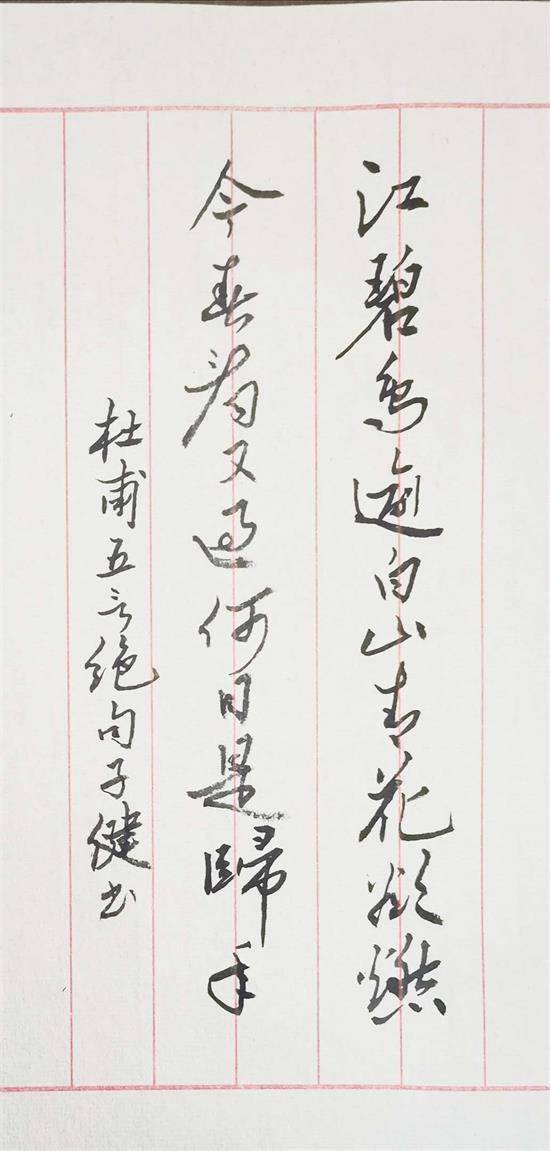 江碧鳥逾白山青花欲燃
今春看又過何日是歸年
杜甫五言絶句子健书